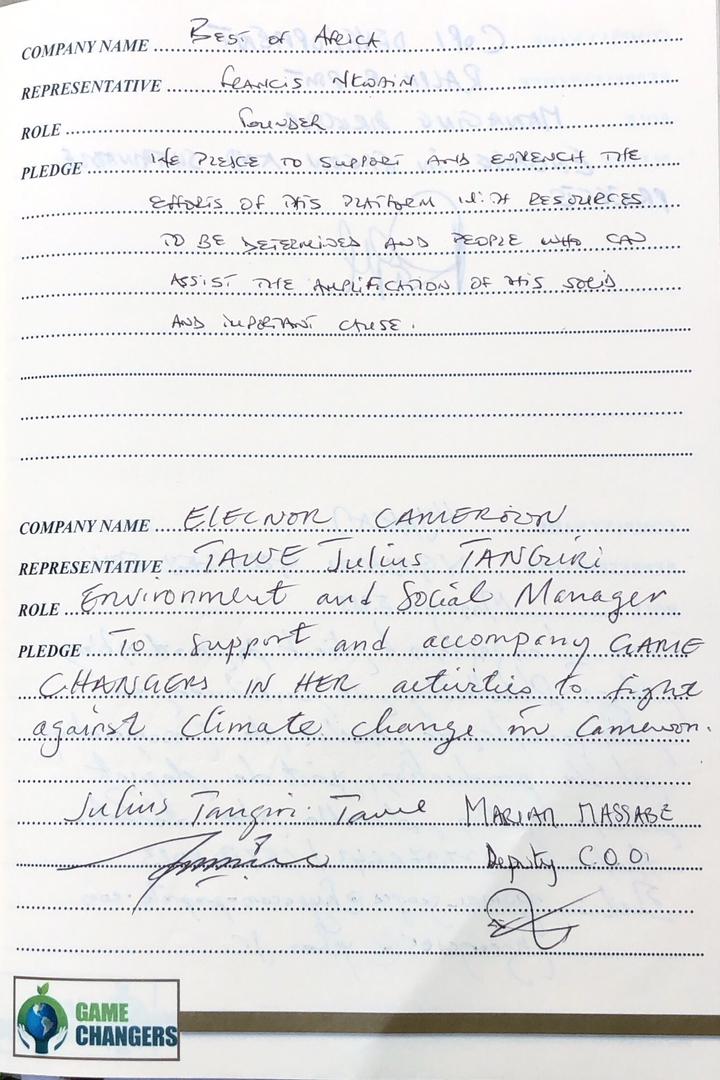 COMPANY NAME BEST OF AFRICA
REPRESENTATIVE FRANCIS NKWAIN
ROLE FOUNDER
PLEDGE WE PLEDGE TO SUPPORT AND ENTRENCH THE
EFFORTS OF THIS PLATFORM WITH RESOURCES
TO BE DETERMINED AND PEOPLE WHO CAN
ASSIST THE AMPLIFICATION OF THIS SOLID
AND IMPORTANT CAUSE.
COMPANY NAME ELECNOR CAMEROON
REPRESENTATIVE TAWE Julius TANGIRI
ROLE Environment and Social Manager
PLEDGE To support and accompany GAME
CHANGERS IN HER activities to fight
against Climate change in Cameroon.
Julius Tangiri Tawe MARIAM MASSABE
Deputy C.O.O.
GAME
CHANGERS